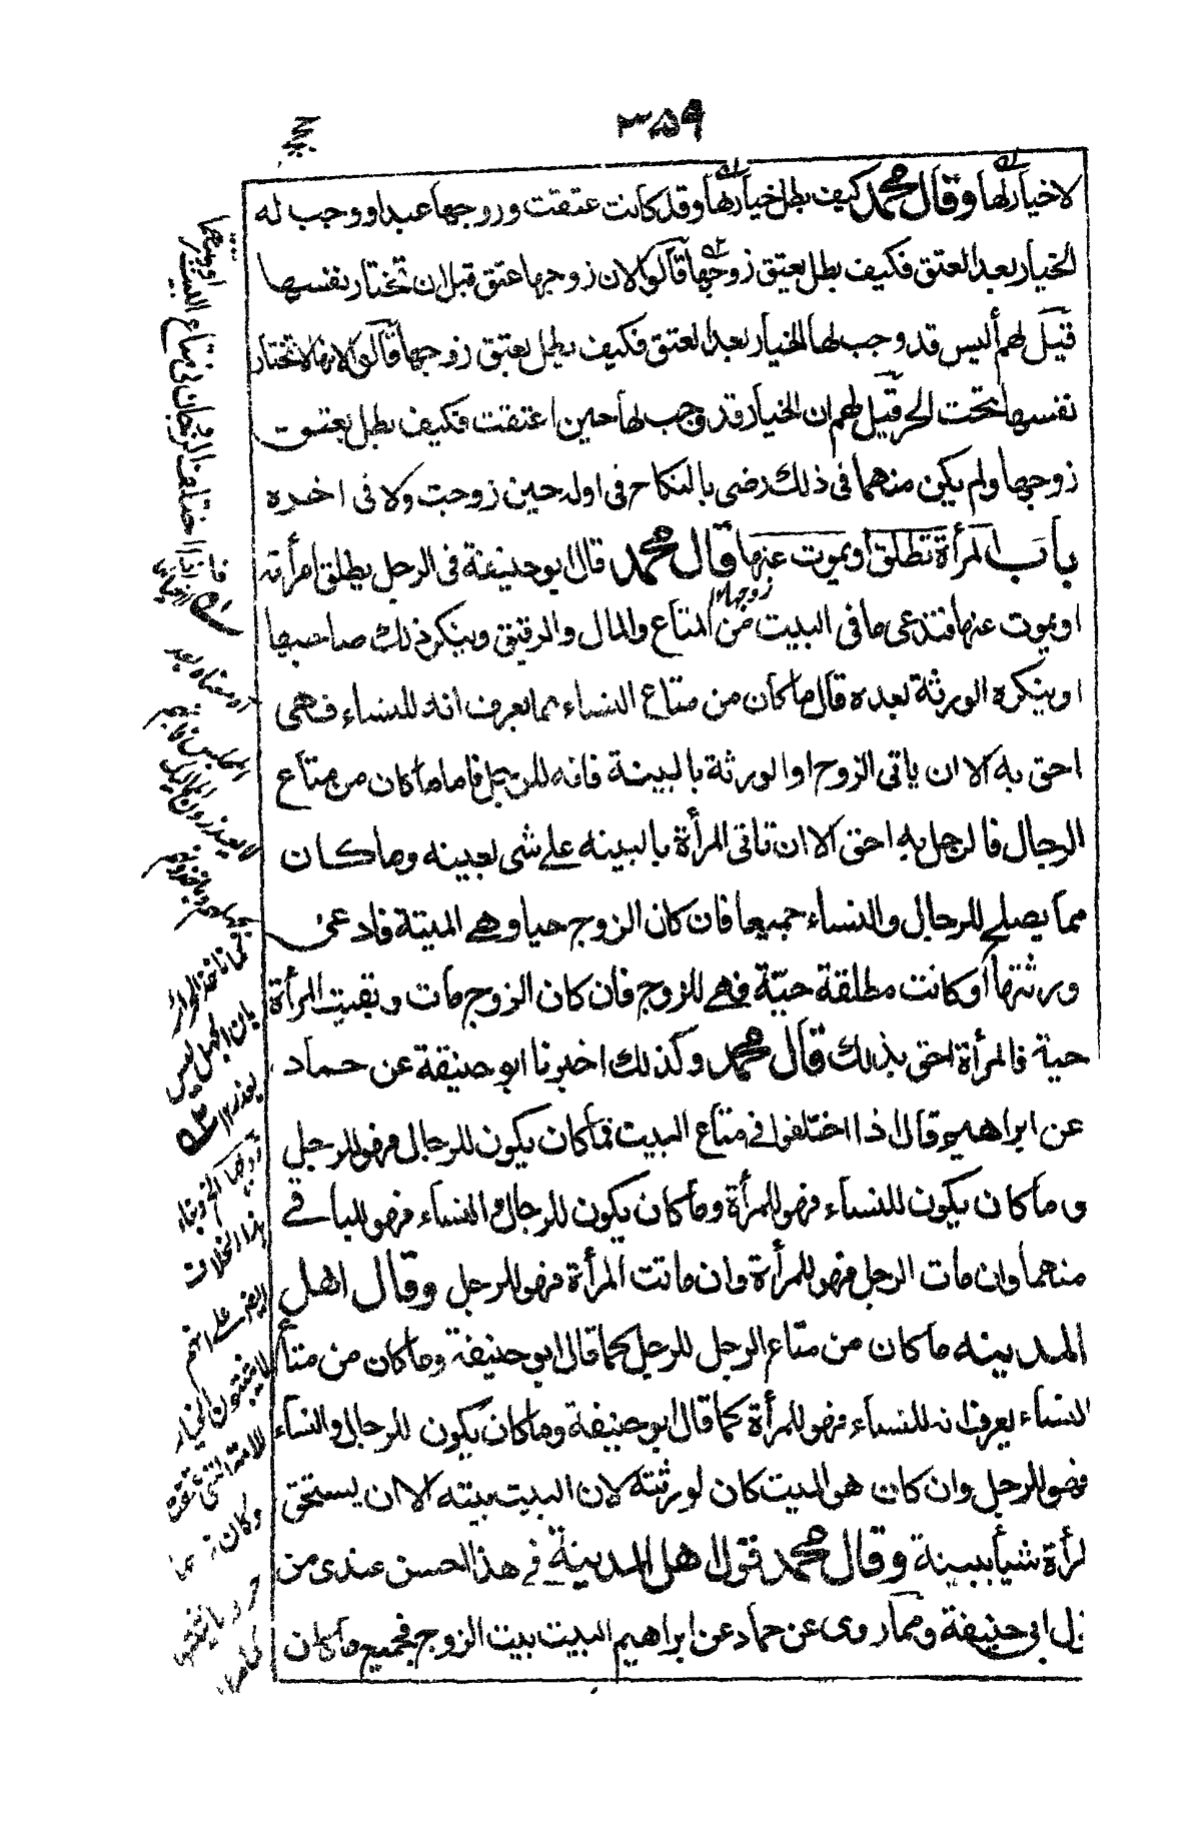 ٣٥٩
لا خيار لها وقال محمد كيف بطل خيارها وقد كانت عتقت وزوجها عبد او وجب له
الخيار بعد العتق فكيف بطل بعتق زوجها قالوا لان زوجها عتق قبل ان تختار نفسها
قيل لهم أليس قد وجب لها الخيار بعد العتق فكيف بطل بعتق زوجها قالوا لانها لا تختار
نفسها تحت الحر قيل لهم ان الخيار قد وجب لها حين اعتقت فكيف بطل بعتق
زوجها ولم يكن منهما فى ذلك رضى بالنكاح فى اوله حين زوجت ولا فى اخره
باب المرأة تطلق او يموت عنها زوجها قال محمد قال ابو حنيفة فى الرجل يطلق امرأته
او يموت عنها فتدعى ما فى البيت من المتاع والمال والرقيق وينكر ذلك صاحبها
او ينكره الورثة بعده قال ما كان من متاع النساء مما يعرف انه للنساء فهى
احق به الا ان ياتى الزوج او الورثة بالبينة فانه للرجل فاما ما كان من متاع
الرجال فالرجل به احق الا ان تاتى المرأة بالبينه على شى بعينه وما كان
مما يصلح للرجال والنساء جميعا فان كان الزوج حيا وهي الميتة فادعى
ورثتها او كانت مطلقة حيّة فهي للزوج فان كان الزوج مات وبقيت المرأة
حية فالمرأة احق بذلك قال محمد وكذلك اخبرنا ابو حنيفة عن حماد
عن ابراهيم قال اذا اختلفوا في متاع البيت فما كان يكون للرجال فهو للرجل
وما كان يكون للنساء فهو للمرأة وما كان يكون للرجال والنساء فهو للباقي
منهما وان مات الرجل فهو للمرأة وان ماتت المرأة فهو للرجل وقال اهل
المدينه ما كان من متاع الرجل للرجل كما قال ابو حنيفة وما كان من متاع
النساء يعرف انه للنساء فهو للمرأة كما قال ابو حنيفة وما كان يكون للرجال والنساء
فهو للرجل وان كان هو الميت كان لورثته لان البيت بيته الا ان يستحق
لرأة شيأ ببينة وقال محمد قول اهل المدينة في هذا احسن عندى من
ول ابى حنيفة ومما روى عن حماد عن ابراهيم البيت بيت الزوج فجميع ما كان